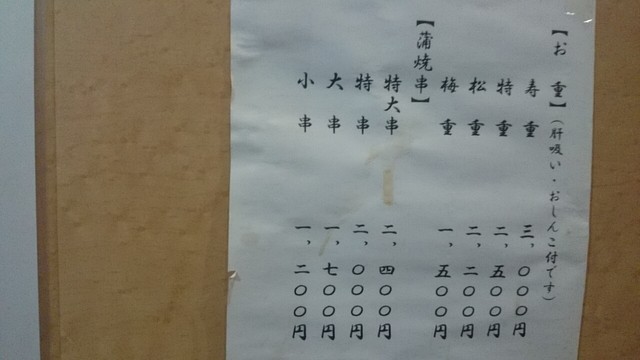 【お重】(肝吸い・おしんこ付です)
寿重 三,〇〇〇円
特重 二,五〇〇円
松重 二,二〇〇円
梅重 一,五〇〇円
【蒲焼串】
特大串 二,四〇〇円
特串 二,〇〇〇円
大串 一,七〇〇円
小串 一,二〇〇円